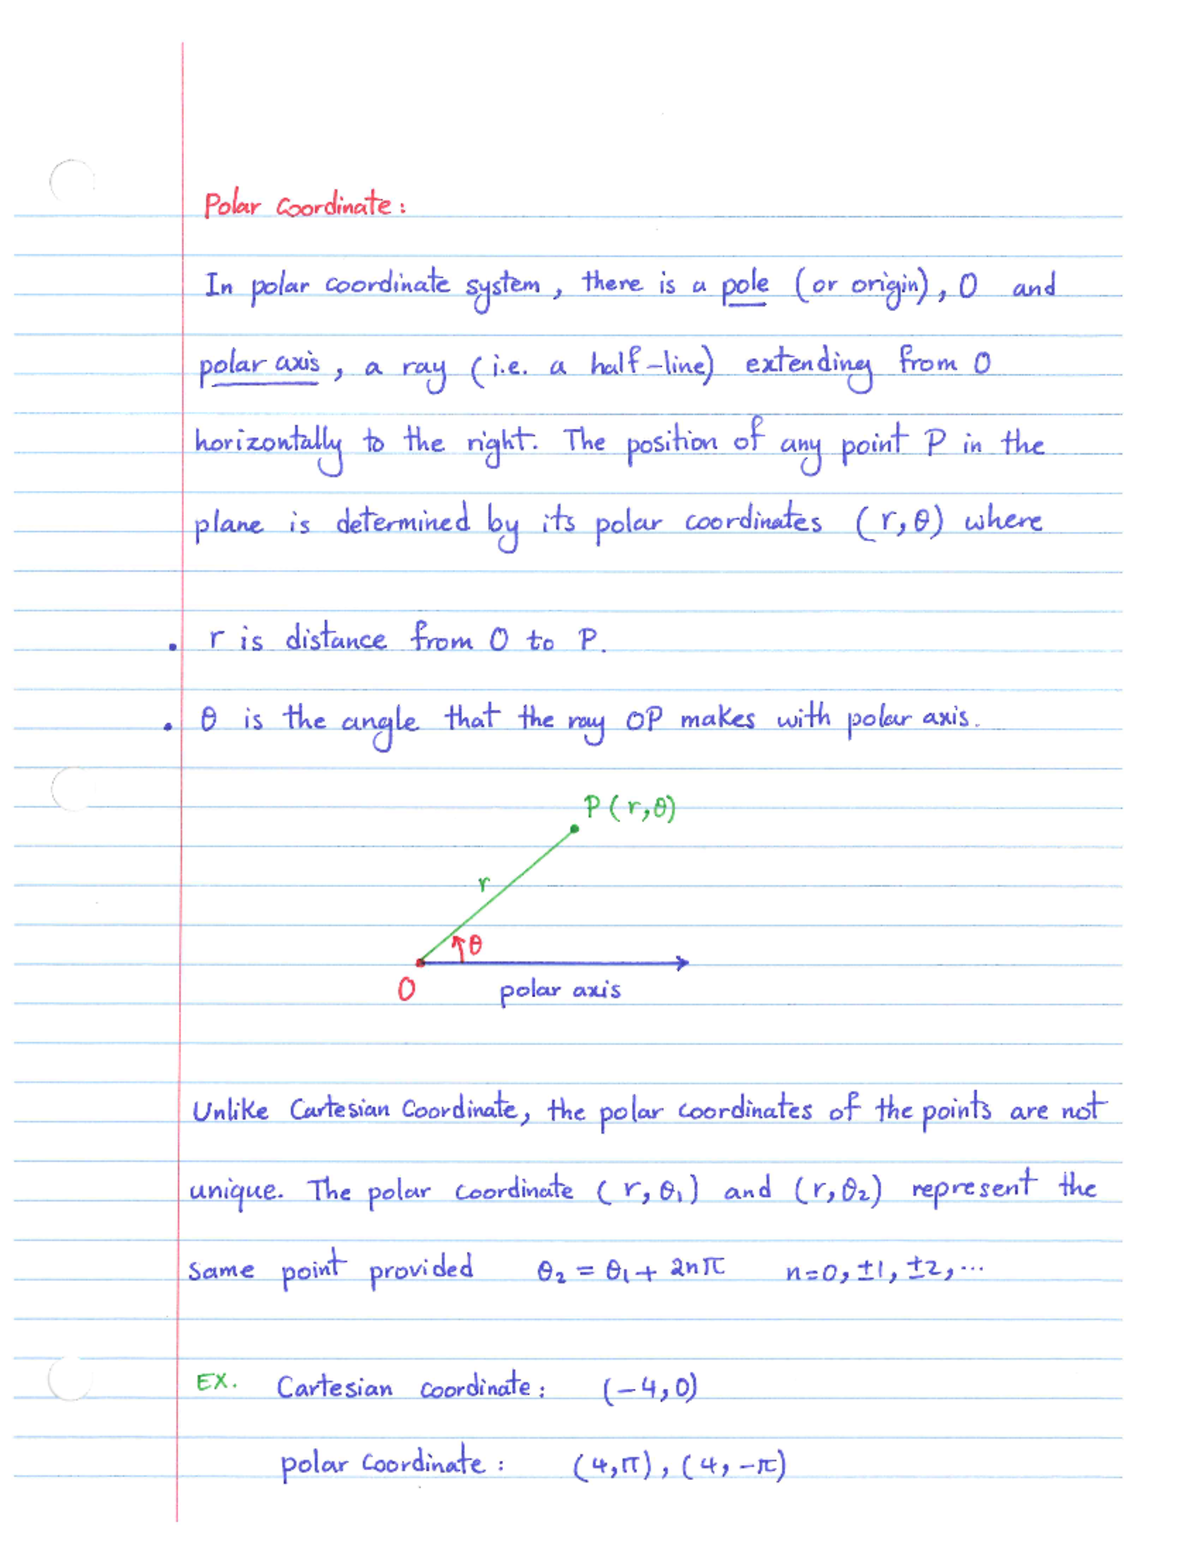 Polar Coordinate:
In polar coordinate system, there is a pole (or origin), O and
polar axis, a ray (i.e. a half-line) extending from O
horizontally to the right. The position of any point P in the
plane is determined by its polar coordinates (r, θ) where
• r is distance from O to P.
• θ is the angle that the ray OP makes with polar axis.
P(r,θ)
r
θ
O
polar axis
Unlike Cartesian Coordinate, the polar coordinates of the points are not
unique. The polar coordinate (r, θ₁) and (r, θ₂) represent the
same point provided θ₂ = θ₁ + 2nπ n=0, ±1, ±2, ...
EX. Cartesian coordinate: (-4,0)
polar coordinate: (4,π), (4, -π)